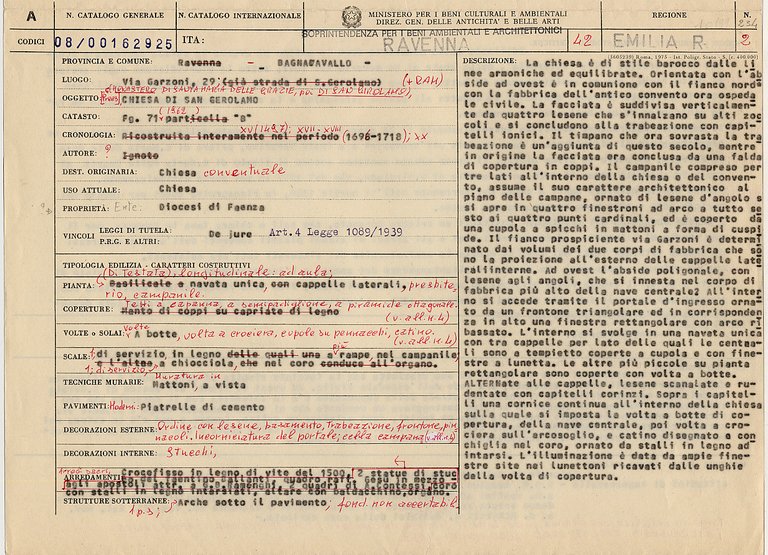 A
N. CATALOGO GENERALE
N. CATALOGO INTERNAZIONALE
MINISTERO PER I BENI CULTURALI E AMBIENTALI
DIREZ. GEN. DELLE ANTICHITA' E BELLE ARTI
REGIONE
N.
CODICI
08/00162925
ITA:
SOPRINTENDENZA PER I BENI AMBIENTALI E ARCHITETTONICI
RAVENNA
42
EMILIA R.
2
PROVINCIA E COMUNE: Ravenna - BAGNACAVALLO -
LUOGO: Via Garzoni, 29 (già strada di S.Gerolamo) (+RAH)
(MONASTERO DI SANTA MARIA DELLE GRAZIE, poi DI SAN GIROLAMO),
OGGETTO: CHIESA DI SAN GEROLAMO
CATASTO: Fg. 71 particella "B"
CRONOLOGIA: Ricostruita interamente nel periodo (1696-1718); XX
XV (1497); XVII-XVIII
AUTORE: Ignoto
DEST. ORIGINARIA: Chiesa conventuale
USO ATTUALE: Chiesa
PROPRIETÀ: Ente: Diocesi di Faenza
VINCOLI
LEGGI DI TUTELA:
P.R.G. E ALTRI:
De jure Art.4 Legge 1089/1939
TIPOLOGIA EDILIZIA - CARATTERI COSTRUTTIVI
(Di testata), longitudinale: ad aula;
PIANTA: Basilicale a navata unica, con cappelle laterali, presbite,
rio, campanile.
Tetti a capanna, a semipadiglione, a piramide ottagonale.
COPERTURE: Manto di coppi su capriate di legno
(v. all. n. 4)
VOLTE o SOLAI: Volte A botte, volta a crociera, cupole su pennacchi, catino.
(v. all. n. 4)
SCALE: 1; di servizio, in legno delle quali una a più rampe, nel campanile
e l'altra, a chiocciola, che nel coro conduce all'organo.
1; di servizio,
TECNICHE MURARIE: Muratura in Mattoni, a vista
PAVIMENTI: Moderni: Piatrelle di cemento
DECORAZIONI ESTERNE: Ordine con lesene, basamento, trabeazione, frontone, pin
nacoli. Incorniciatura del portale; cella campana (v. all. n. 4)
DECORAZIONI INTERNE: Stucchi,
Arredi sacri,
ARREDAMENTI: Crocefisso in legno di vite del 1500, 2 statue di stuc
STRUTTURE SOTTERRANEE: Arche sotto il pavimento; fond. non accertabili
DESCRIZIONE: La chiesa è di stile barocco dalle li
nee armoniche ed equilibrate. Orientata con l'ab
side ad ovest è in comunione con il fianco nord
con la fabbrica dell'antico convento ora ospeda
le civile. La facciata è suddivisa verticalmen-
te da quattro lesene che s'innalzano su alti zoc
coli e si concludono alla trabeazione con capi-
telli ionici. Il timpano che ora sovrasta la tra
beazione è un'aggiunta di questo secolo, mentre
in origine la facciata era conclusa da una falda
di copertura in coppi. Il campanile compreso per
tre lati all'interno della chiesa e del conven-
to, assume il suo carattere architettonico al
piano delle campane, ornato di lesene d'angolo e
si apre in quattro finestroni ad arco a tutto se
sto ai quattro punti cardinali, ed è coperto da
una cupola a spicchi in mattoni a forma di cuspi
de. Il fianco prospiciente via Garzoni è determi
nato dai volumi dei due corpi di fabbrica che so
no la proiezione all'esterno delle cappelle late
rali interne. Ad ovest l'abside poligonale, con
lesene agli angoli, che si innesta nel corpo di
fabbrica più alto della nave centrale. All'inter
no si accede tramite il portale d'ingresso orna-
to da un frontone triangolare ed in corrisponden
za in alto una finestra rettangolare con arco ri
bassato. L'interno si svolge in una navata unica
con tre cappelle per lato delle quali le centra-
li sono a tempietto coperte a cupola e con fine-
stre a lunetta. Le altre più piccole su pianta
rettangolare sono coperte con volta a botte.
ALTERNate alle cappelle, lesene scanalate e ru-
dentate con capitelli corinzi. Sopra i capitel-
li una cornice continua all'interno della chiesa
sulla quale si imposta la volta a botte di co-
pertura, della nave centrale, poi volta a cro-
ciera sull'arcosoglio, e catino disegnato a con
chiglia nel coro, ornato da stalli in legno ad
intarsi. L'illuminazione è data da ampie fine-
stre site nei lunettoni ricavati dalle unghie
della volta di copertura.